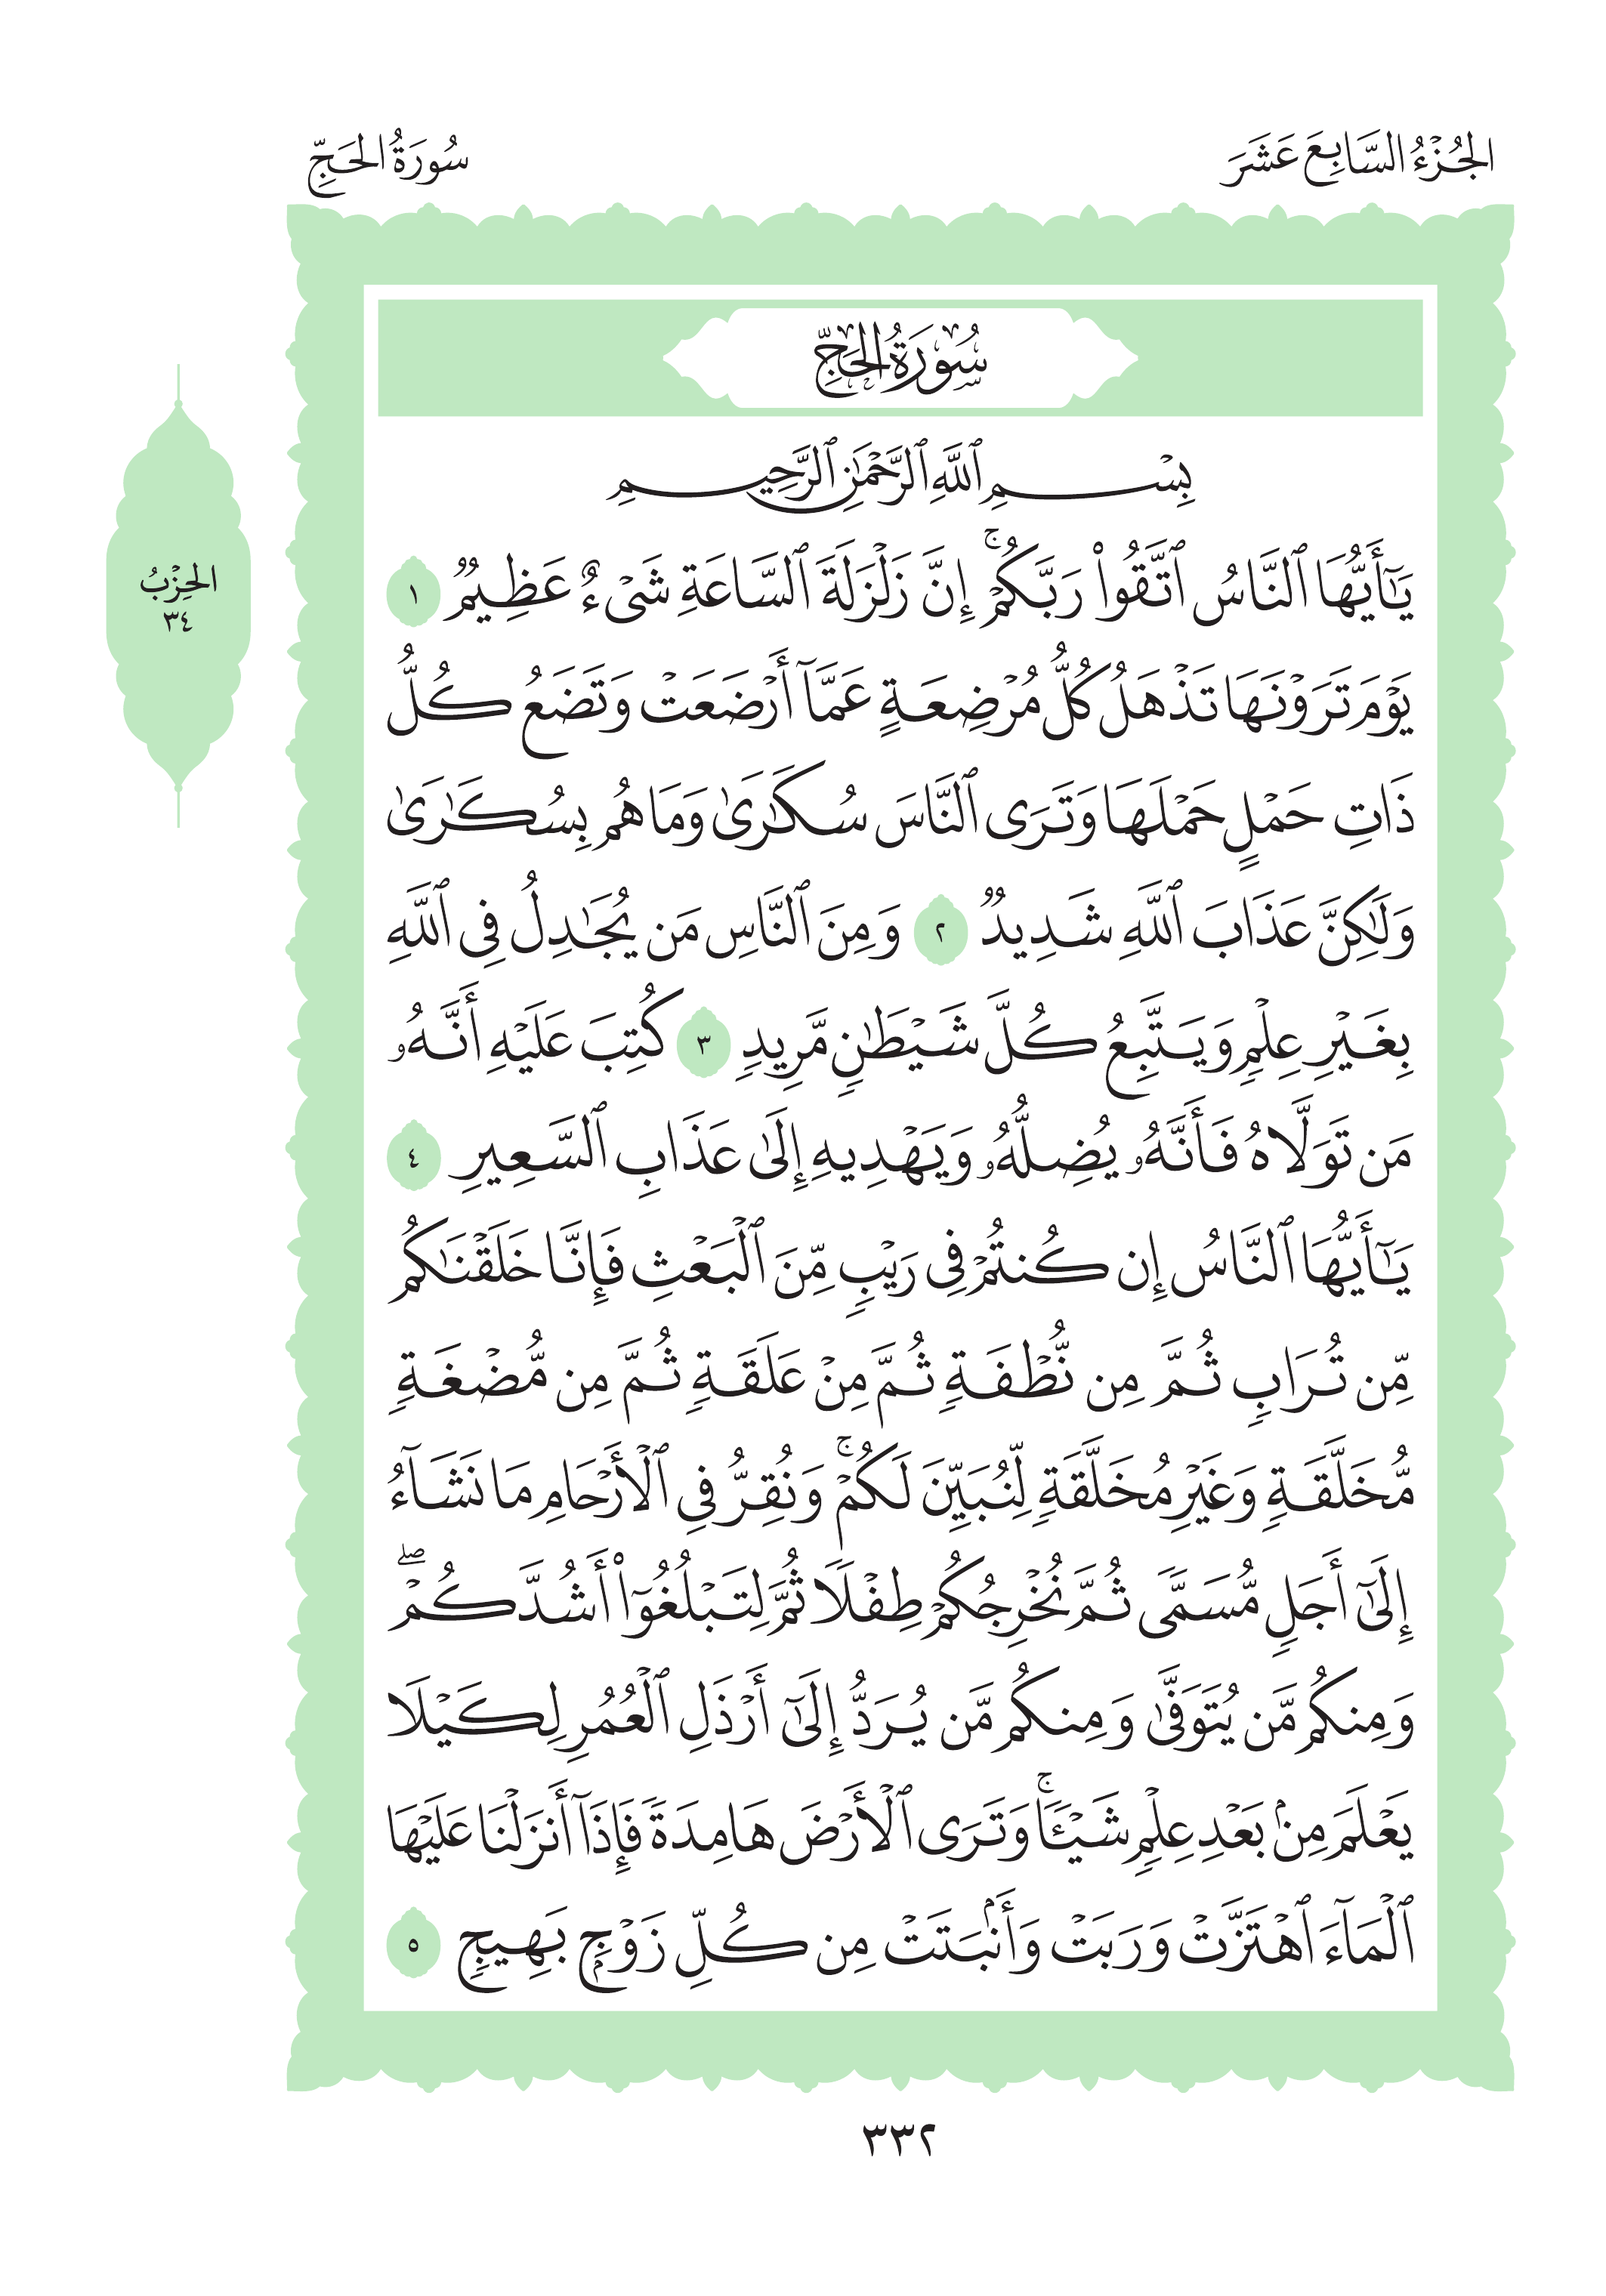 الجُزْءُ السَّابِعَ عَشَرَ
سُورَةُ الحَجِّ
سُورَةُ الحَجِّ
بِسْمِ ٱللَّهِ ٱلرَّحْمَٰنِ ٱلرَّحِيمِ
يَٰٓأَيُّهَا ٱلنَّاسُ ٱتَّقُوا۟ رَبَّكُمْ ۚ إِنَّ زَلْزَلَةَ ٱلسَّاعَةِ شَىْءٌ عَظِيمٌ ١
يَوْمَ تَرَوْنَهَا تَذْهَلُ كُلُّ مُرْضِعَةٍ عَمَّآ أَرْضَعَتْ وَتَضَعُ كُلُّ
ذَاتِ حَمْلٍ حَمْلَهَا وَتَرَى ٱلنَّاسَ سُكَٰرَىٰ وَمَا هُم بِسُكَٰرَىٰ
وَلَٰكِنَّ عَذَابَ ٱللَّهِ شَدِيدٌ ٢ وَمِنَ ٱلنَّاسِ مَن يُجَٰدِلُ فِى ٱللَّهِ
بِغَيْرِ عِلْمٍ وَيَتَّبِعُ كُلَّ شَيْطَٰنٍ مَّرِيدٍ ٣ كُتِبَ عَلَيْهِ أَنَّهُۥ
مَن تَوَلَّاهُ فَأَنَّهُۥ يُضِلُّهُۥ وَيَهْدِيهِ إِلَىٰ عَذَابِ ٱلسَّعِيرِ ٤
يَٰٓأَيُّهَا ٱلنَّاسُ إِن كُنتُمْ فِى رَيْبٍ مِّنَ ٱلْبَعْثِ فَإِنَّا خَلَقْنَٰكُم
مِّن تُرَابٍ ثُمَّ مِن نُّطْفَةٍ ثُمَّ مِنْ عَلَقَةٍ ثُمَّ مِن مُّضْغَةٍ
مُّخَلَّقَةٍ وَغَيْرِ مُخَلَّقَةٍ لِّنُبَيِّنَ لَكُمْ ۚ وَنُقِرُّ فِى ٱلْأَرْحَامِ مَا نَشَآءُ
إِلَىٰٓ أَجَلٍ مُّسَمًّى ثُمَّ نُخْرِجُكُمْ طِفْلًا ثُمَّ لِتَبْلُغُوٓا۟ أَشُدَّكُمْ ۖ
وَمِنكُم مَّن يُتَوَفَّىٰ وَمِنكُم مَّن يُرَدُّ إِلَىٰٓ أَرْذَلِ ٱلْعُمُرِ لِكَيْلَا
يَعْلَمَ مِنۢ بَعْدِ عِلْمٍ شَيْـًٔا ۚ وَتَرَى ٱلْأَرْضَ هَامِدَةً فَإِذَآ أَنزَلْنَا عَلَيْهَا
ٱلْمَآءَ ٱهْتَزَّتْ وَرَبَتْ وَأَنۢبَتَتْ مِن كُلِّ زَوْجٍۭ بَهِيجٍ ٥
الحِزْبُ
٣٤
٣٣٢